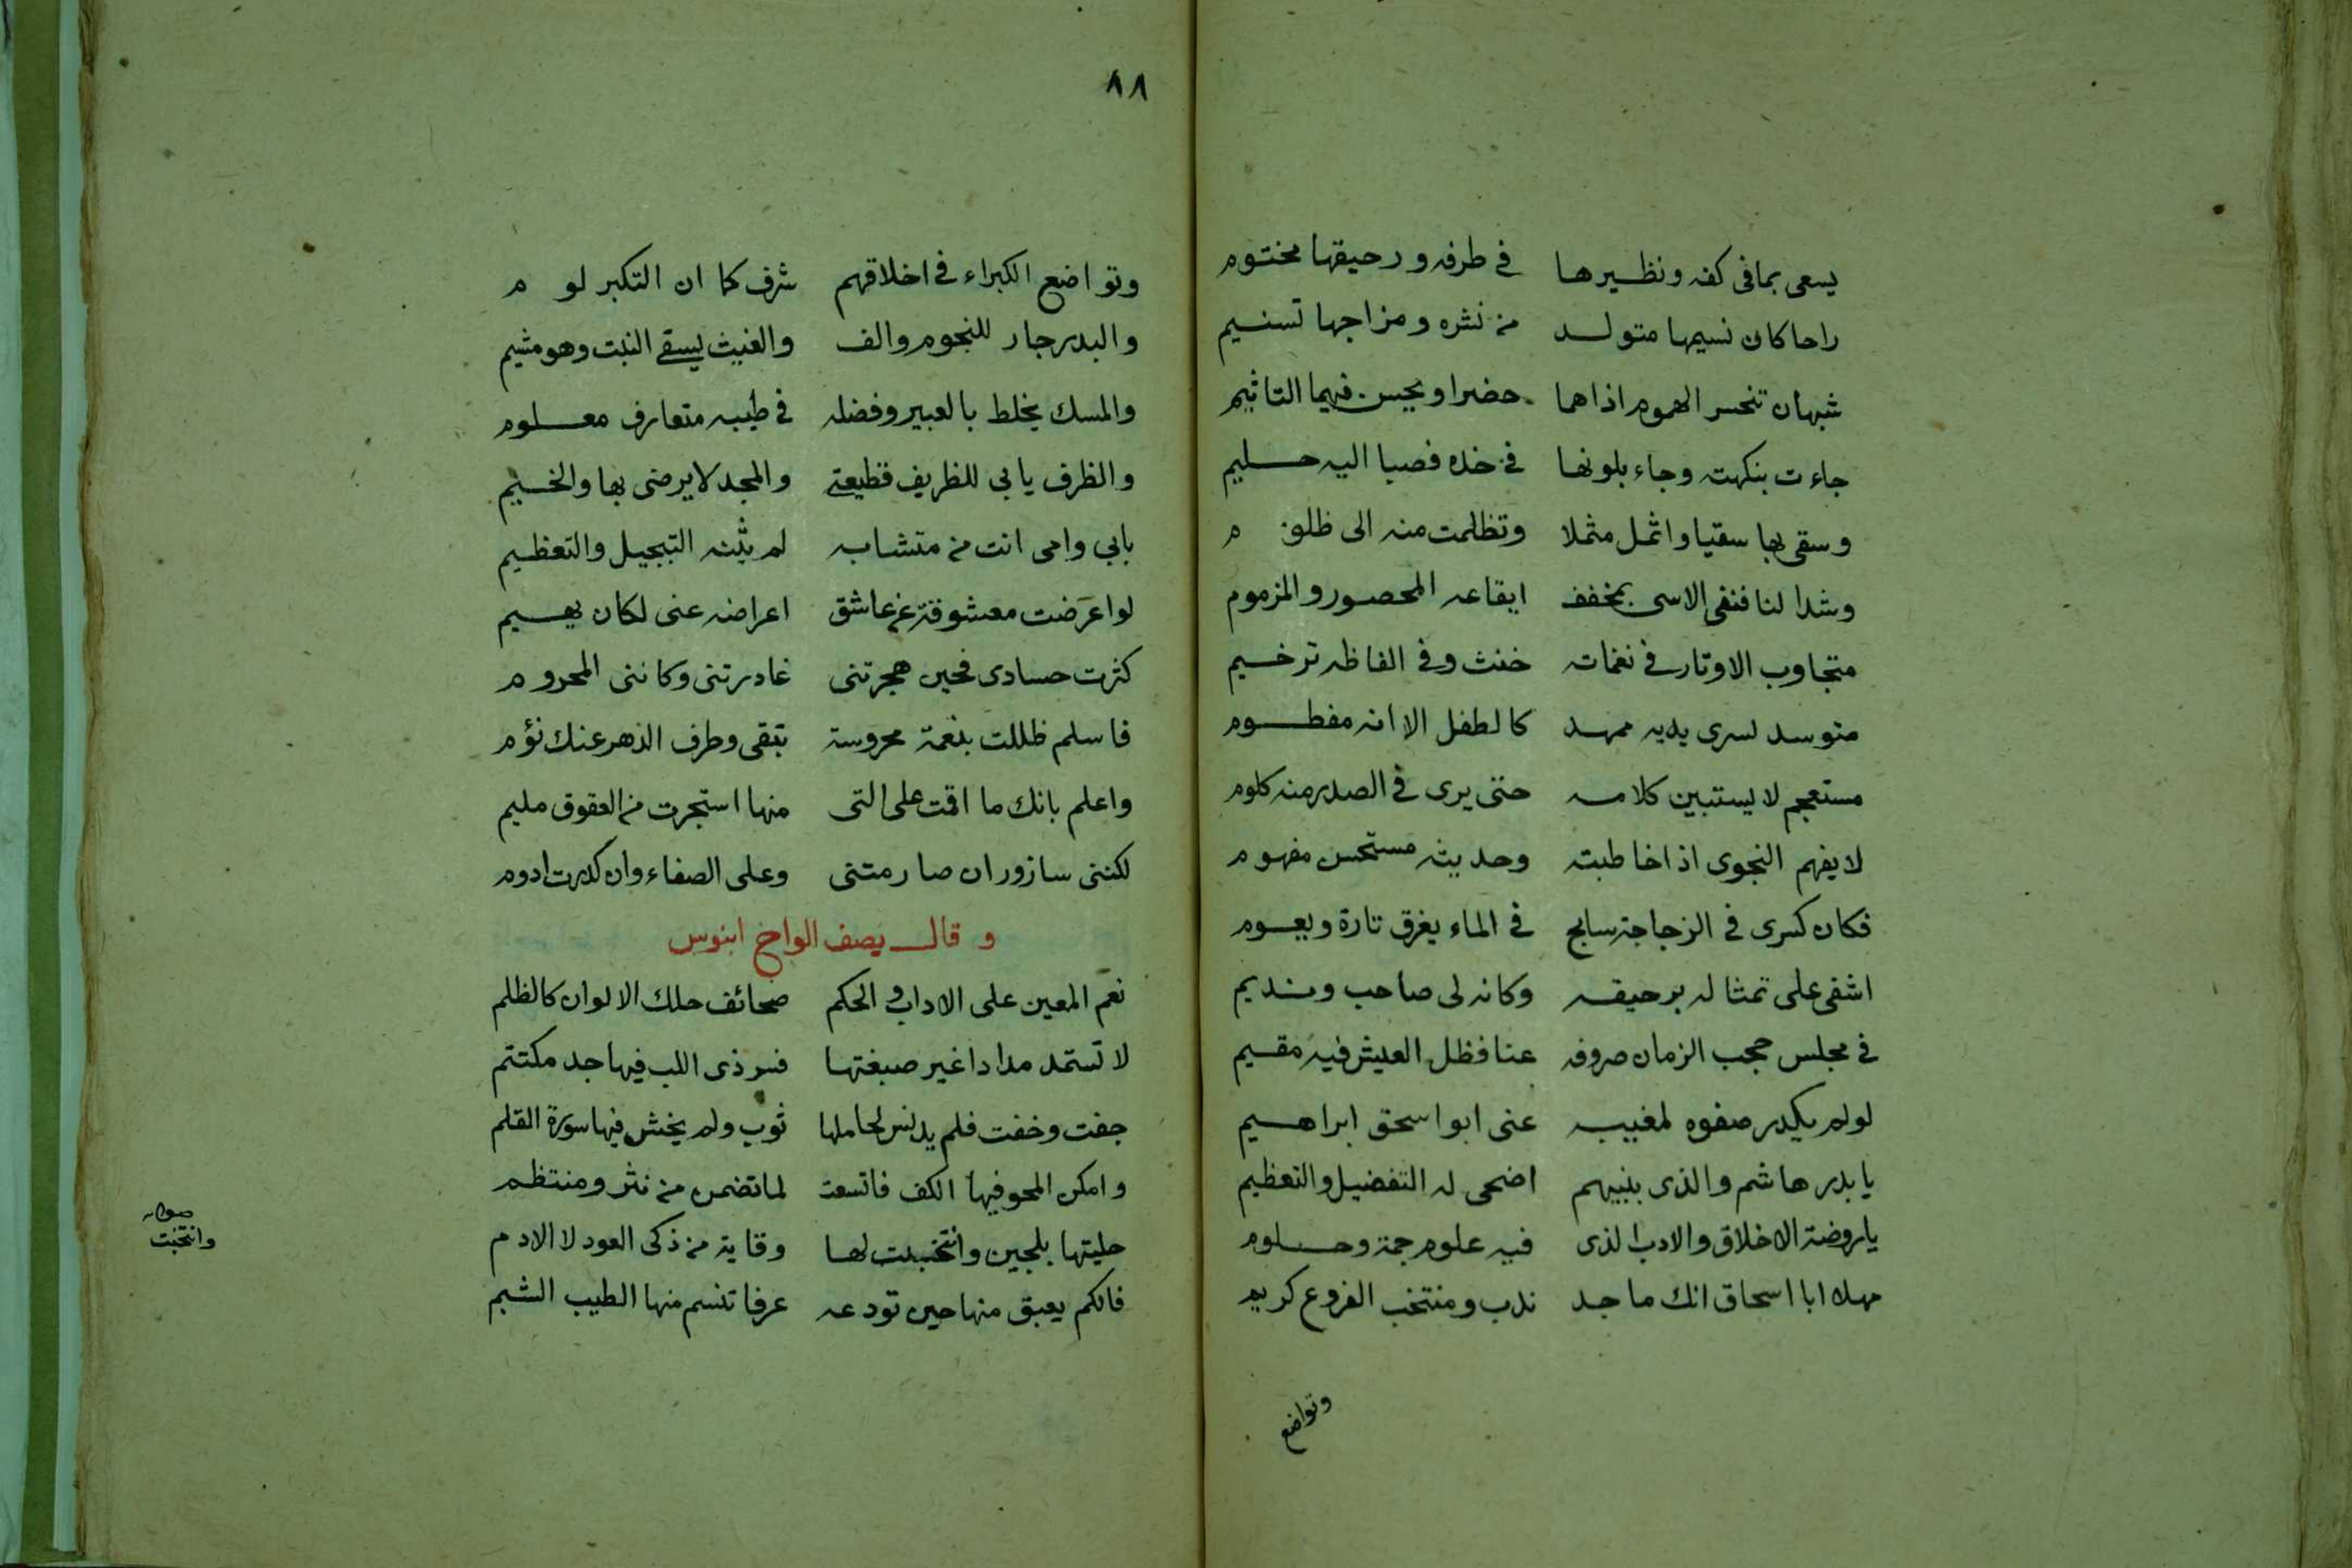 يسعى بما فى كفه ونظيرها في طرفه ورحيقها مختوم
راحا كان نسيمها متولد من نشره ومزاجها تسنيم
شبهان تنحسر الهموم اذا هما حضرا ويحسن فيهما التاثيم
جاءت بنكهته وجاء بلونها في خده فصبا اليه حليم
وسقى بها سقيا واثمل مثملا وتظلمت منه الى ظلوم
وشدا لنا فنفى الاسى بمخفف ايقاعه المحصور والمزموم
متجاوب الاوتار في نغماته خنث وفي الفاظه ترخيم
متوسد لسرى يديه ممهد كالطفل الا انه مفطوم
مستعجم لا يستبين كلامه حتى يرى في الصدر منه كلوم
لا يفهم النجوى اذا خاطبته وحديثه مستحسن مفهوم
فكان كسرى في الزجاجة سابح في الماء يغرق تارة ويعوم
اشفى على تمثاله برحيقه وكانه لى صاحب ونديم
في مجلس حجب الزمان صروفه عنا فظل العيش فيه مقيم
لولم يكدر صفوه لمغيبه عنى ابو اسحق ابراهيم
يا بدر هاشم والذى بنبيهم اضحى له التفضيل والتعظيم
يا روضة الاخلاق والادب الذى فيه علوم جمة وحلوم
مهلا ابا اسحاق انك ماجد ندب ومنتخب الفروع كريم
وتواضع
٨٨
وتواضع الكبراء في اخلاقهم شرف كما ان التكبر لوم
والبدر جار للنجوم والف والغيث يسقى النبت وهو مشيم
والمسك يخلط بالعبير وفضله في طيبه متعارف معلوم
والظرف يابى للظريف قطيعتى والمجد لا يرضى بها والخيم
بابي وامى انت من متشابه لم يثنه التبجيل والتعظيم
لو اعرضت معشوقة عن عاشق اعراضه عنى لكان يهيم
كثرت حسادى فحين هجرتنى غادرتنى وكاننى المحروم
فاسلم ظللت بنعمة محروسة تبقى وطرف الدهر عنك نؤم
واعلم بانك ما اقمت على التى منها استجرت من العقوق مليم
لكننى سازور ان صارمتنى وعلى الصفاء وان كدرت ادوم
وقال يصف الواح ابنوس
نعم المعين على الاداب والحكم صحائف حلك الالوان كالظلم
لا تستمد مدادا غير صبغتها فسر ذى اللب فيها جد مكتتم
جفت وخفت فلم يدنس لحاملها ثوب ولم يخش فيها سورة القلم
وامكن المحو فيها الكف فاتسعت لما تضمن من نثر ومنتظم
حليتها بلجين وانتخبت لها وقاية من ذكى العود لا الادم
فالكم يعبق منها حين تودعه عرفا تنسم منها الطيب الشيم
صوابه
وانتخبت